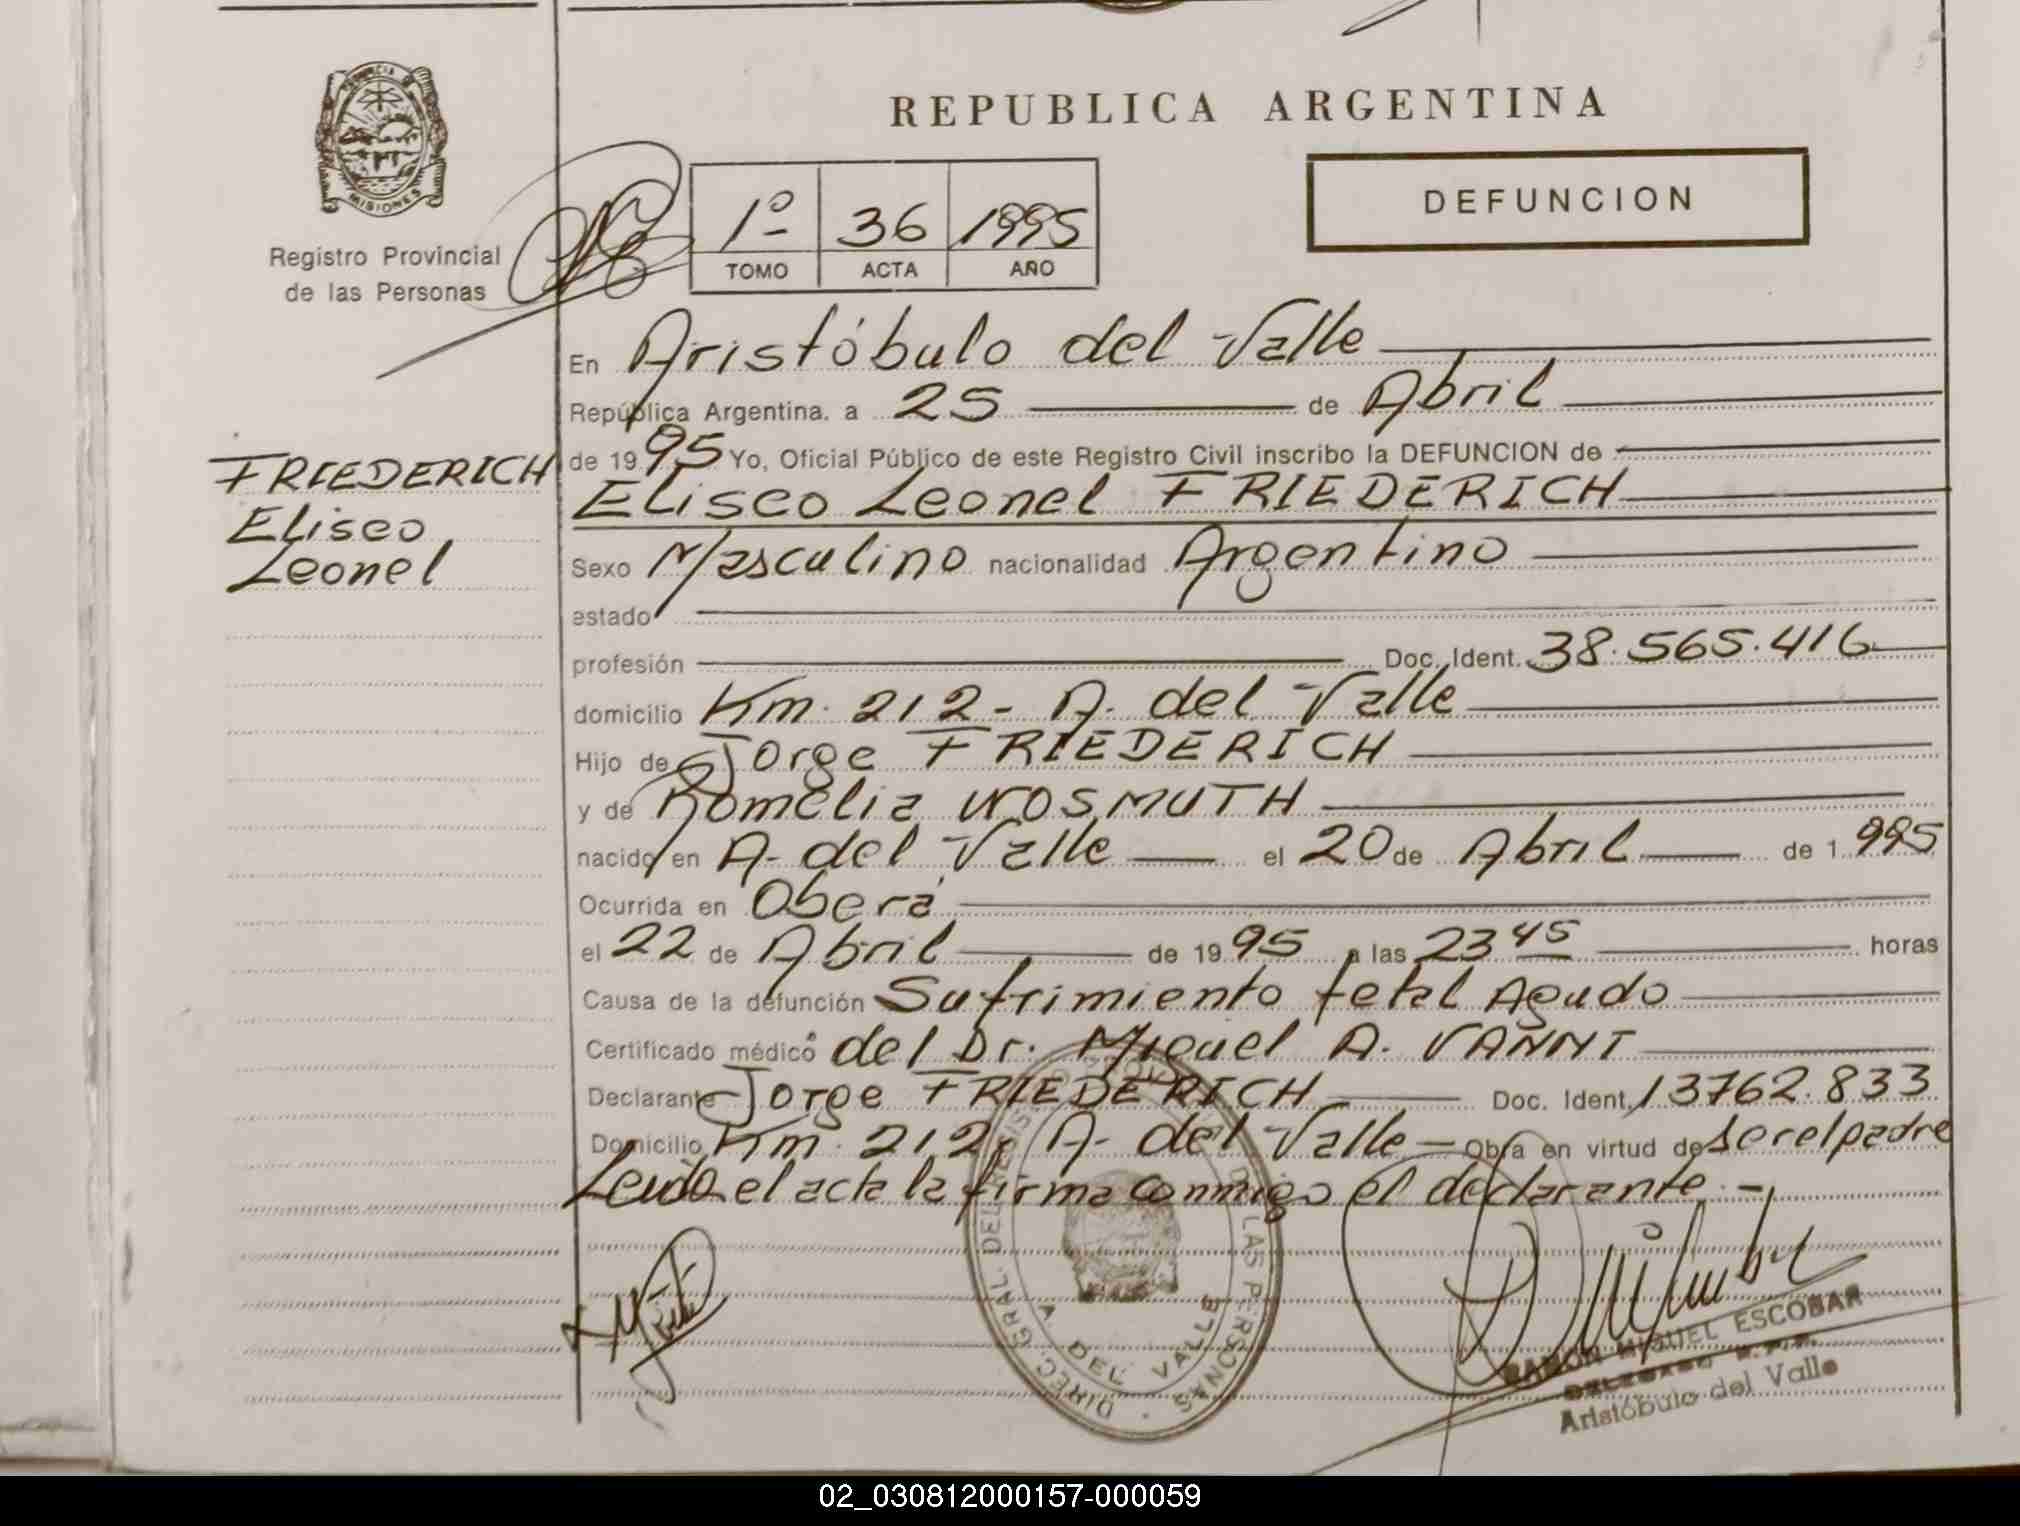 REPUBLICA ARGENTINA
PROVINCIA DE MISIONES
Registro Provincial
de las Personas
1º 36 1995
TOMO ACTA AÑO
DEFUNCION
FRIEDERICH
Eliseo
Leonel
En Aristóbulo del Valle
República Argentina. a 25 de Abril
de 1995 Yo, Oficial Público de este Registro Civil inscribo la DEFUNCION de
Eliseo Leonel FRIEDERICH
Sexo Masculino nacionalidad Argentino
estado
profesión Doc. Ident. 38.565.416
domicilio Km. 212 - A. del Valle
Hijo de Jorge FRIEDERICH
y de Romelia WOSMUTH
nacido en A. del Valle el 20 de Abril de 1.995
Ocurrida en Oberá
el 22 de Abril de 1995 a las 23 45 horas
Causa de la defunción Sufrimiento fetal Agudo
Certificado médico del Dr. Miguel A.
Declarante Jorge FRIEDERICH Doc. Ident. 13762.833
Domicilio Km. 212, A. del Valle Obra en virtud de ser el padre
Leida el acta la firma conmigo el declarante. -
DIREC. GRAL. DEL REGISTRO PROV. DE LAS PERSONAS
A. DEL VALLE
RAMON MIGUEL ESCOBAR
DELEGADO R.P.P.
Aristóbulo del Valle
02_030812000157-000059